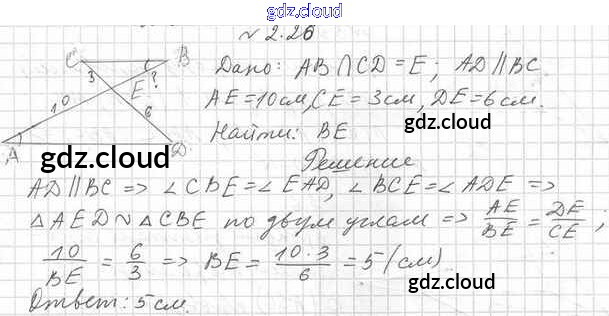 gdz.cloud
№ 2.26
C B
3 E ?
10 6
A D
gdz.cloud
Дано: AB ∩ CD = E; AD ∥ BC.
AE = 10 см, CE = 3 см, DE = 6 см.
gdz.cloud
Найти: BE
Решение
AD ∥ BC => ∠CBE = ∠EAD, ∠BCE = ∠ADE =>
△AED ~ △CBE по двум углам => AE/BE = DE/CE;
10/BE = 6/3 => BE = 10·3/6 = 5 (см)
gdz.cloud
Ответ: 5 см.
gdz.cloud